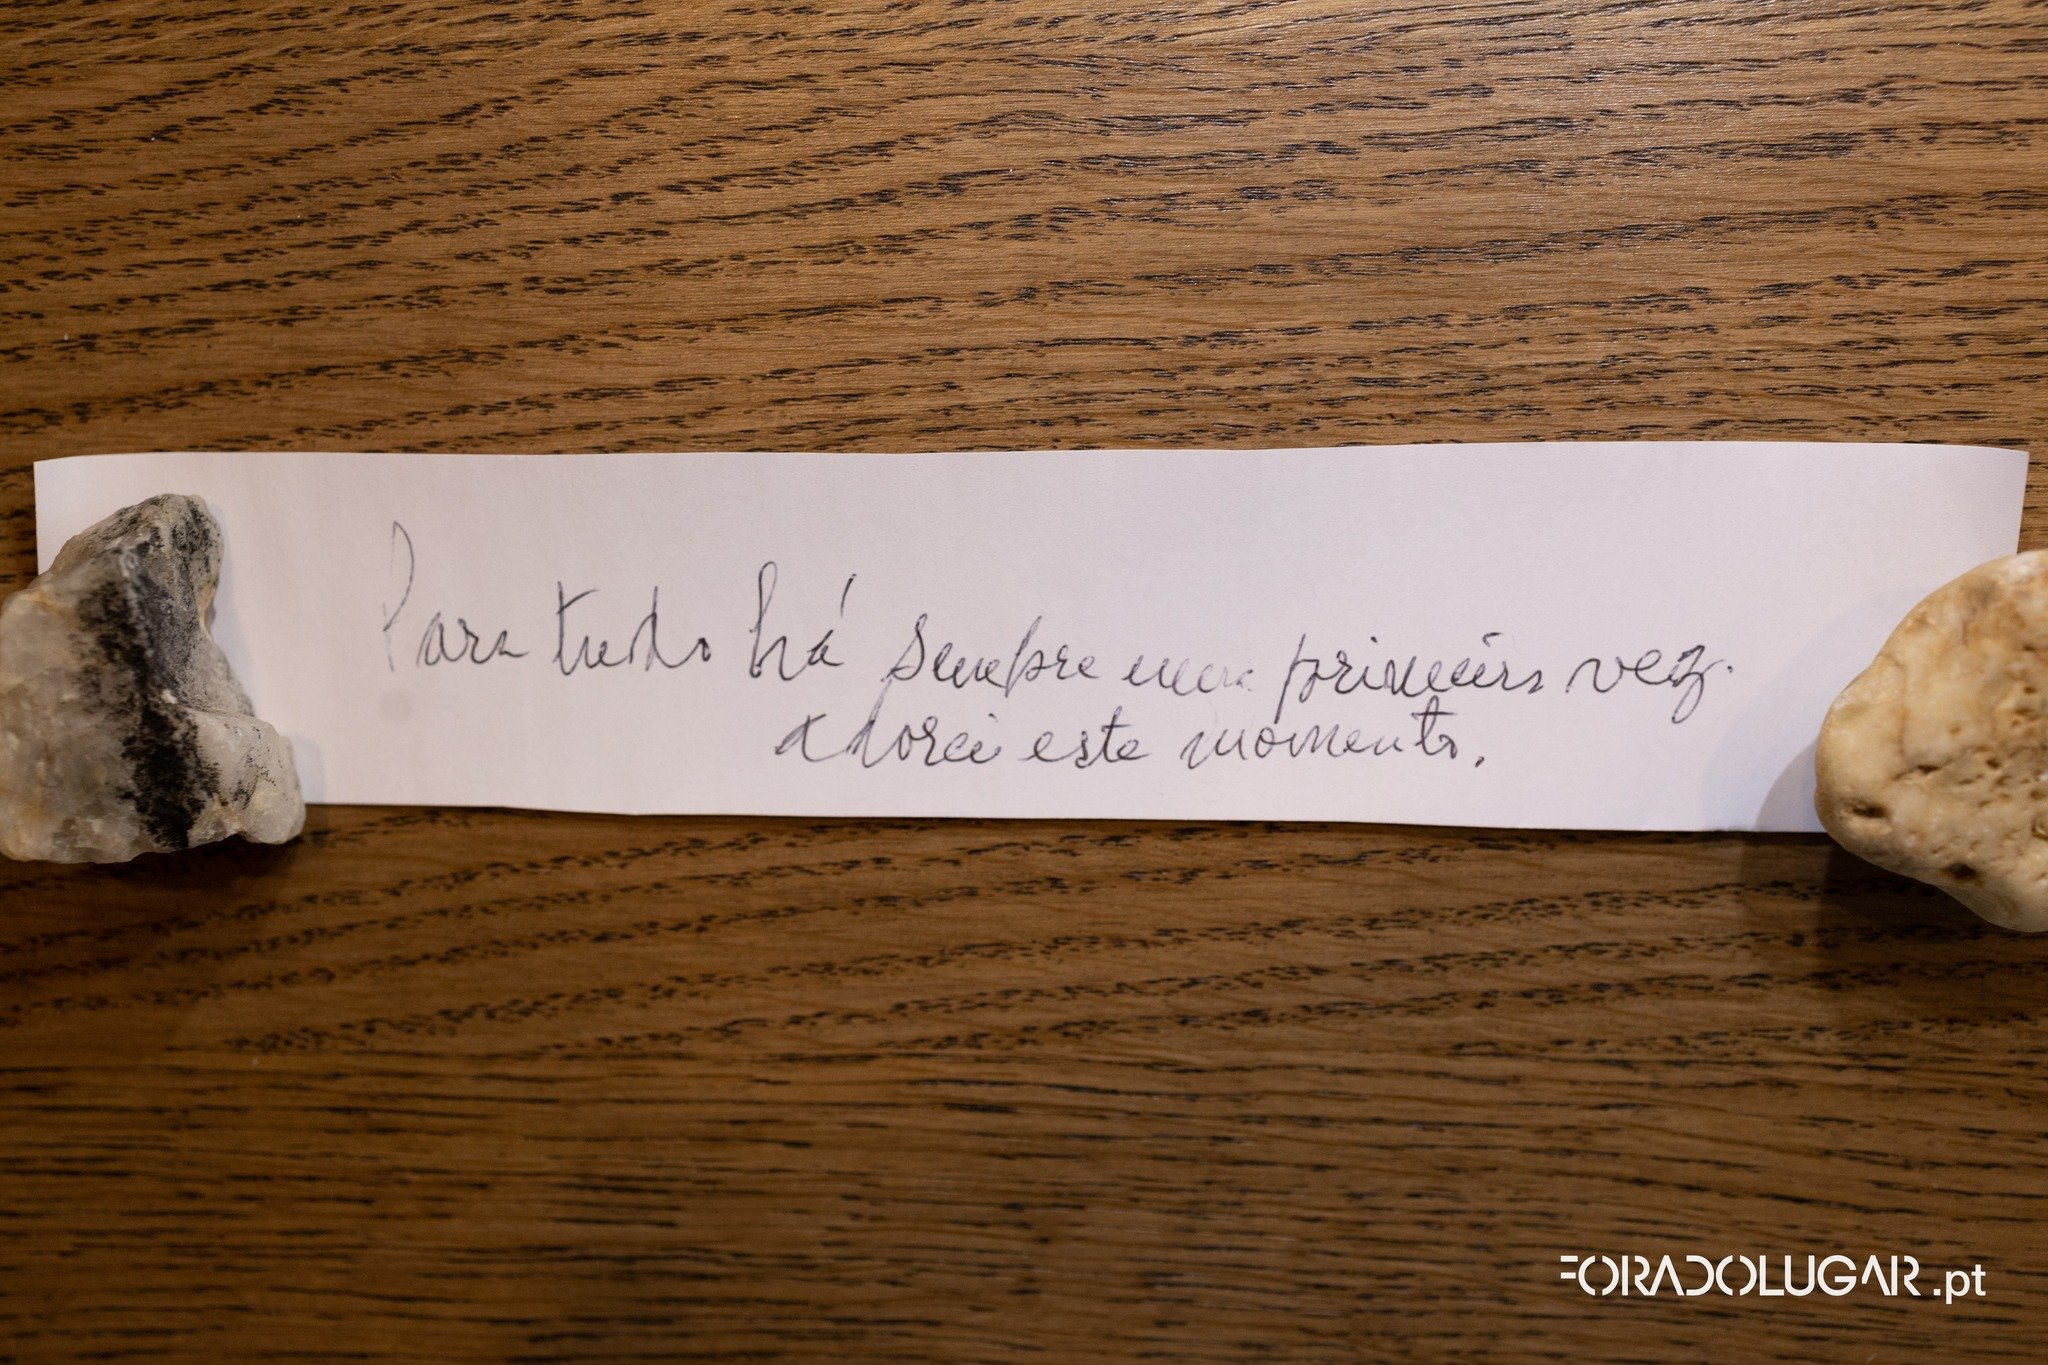 Para tudo há sempre uma primeira vez.
Adorei este momento.
FORADOLUGAR.pt